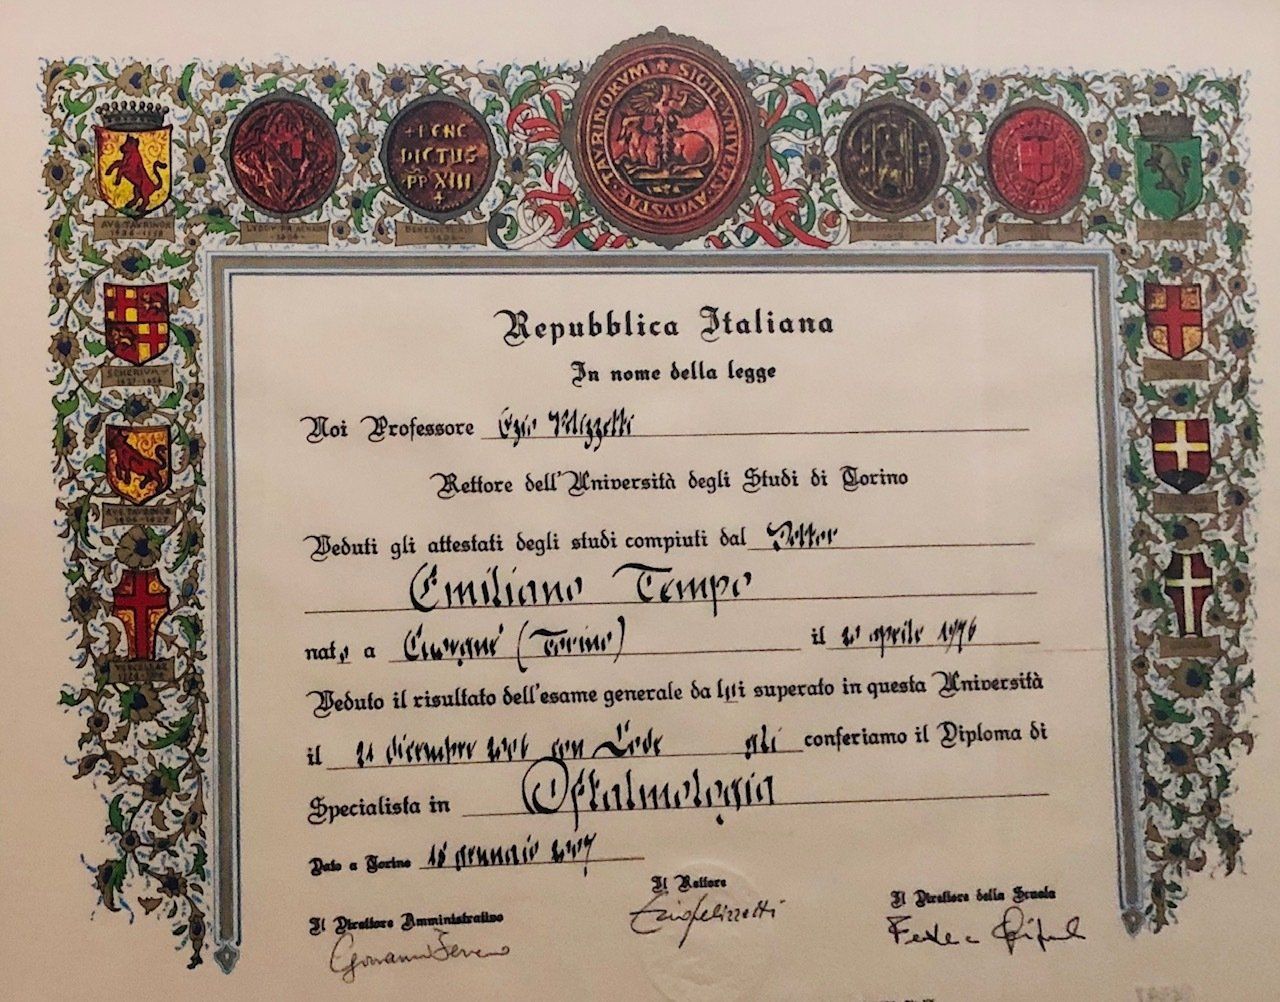 AUG. TAURINOR
+ BENE
DICTUS
PP XIII
+
SIGIL · VNIVERS · AVGVSTAE · TAVRINORVM +
1676
Repubblica Italiana
In nome della legge
Noi Professore Ezio Pelizzetti
Rettore dell'Università degli Studi di Torino
Veduti gli attestati degli studi compiuti dal Dottor
Emiliano Tempo
nato a Cuorgnè (Torino) il aprile 1976
Veduto il risultato dell'esame generale da lui superato in questa Università
il dicembre 2006 con Lode gli conferiamo il Diploma di
Specialista in Oftalmologia
Dato a Torino gennaio 2007
Il Direttore Amministrativo
Il Rettore
Il Direttore della Scuola